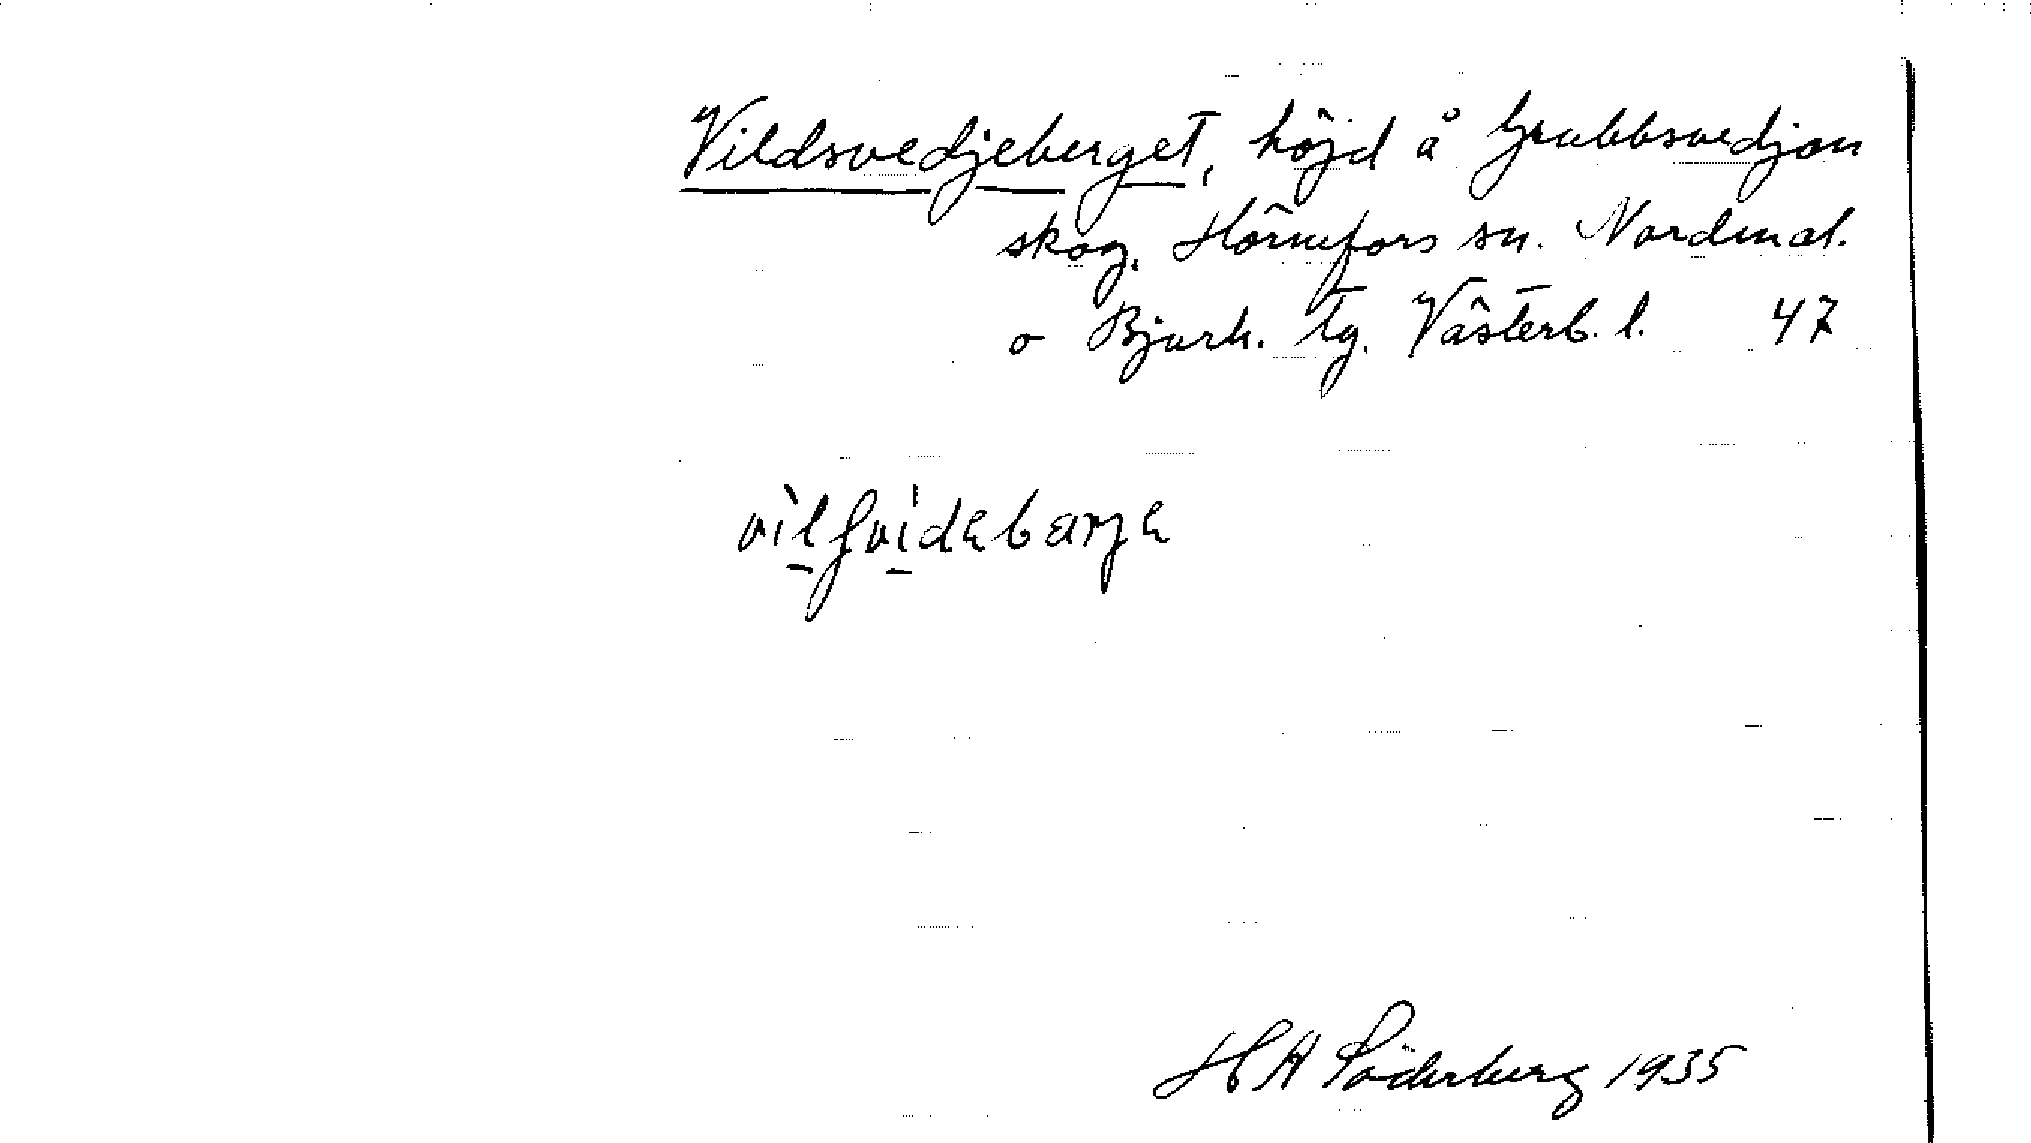 Vildsvedjeberget, höjd å Grubbsvedjan
skog. Hörnefors sn. Nordmal.
o Bjurh. tg. Västerb. l. 47
H A Söderberg 1935